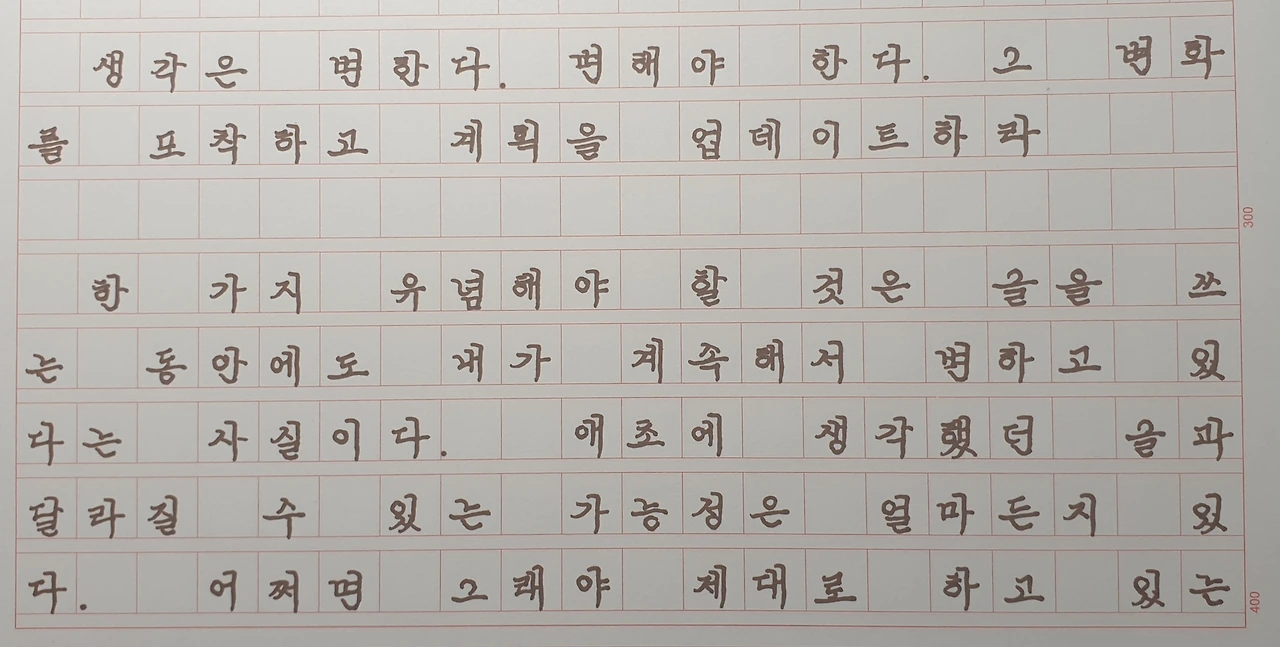 생각은 변한다. 변해야 한다. 그 변화
를 포착하고 계획을 업데이트하라
300
한 가지 유념해야 할 것은 글을 쓰
는 동안에도 내가 계속해서 변하고 있
다는 사실이다. 애초에 생각했던 글과
달라질 수 있는 가능성은 얼마든지 있
다. 어쩌면 그래야 제대로 하고 있는
400